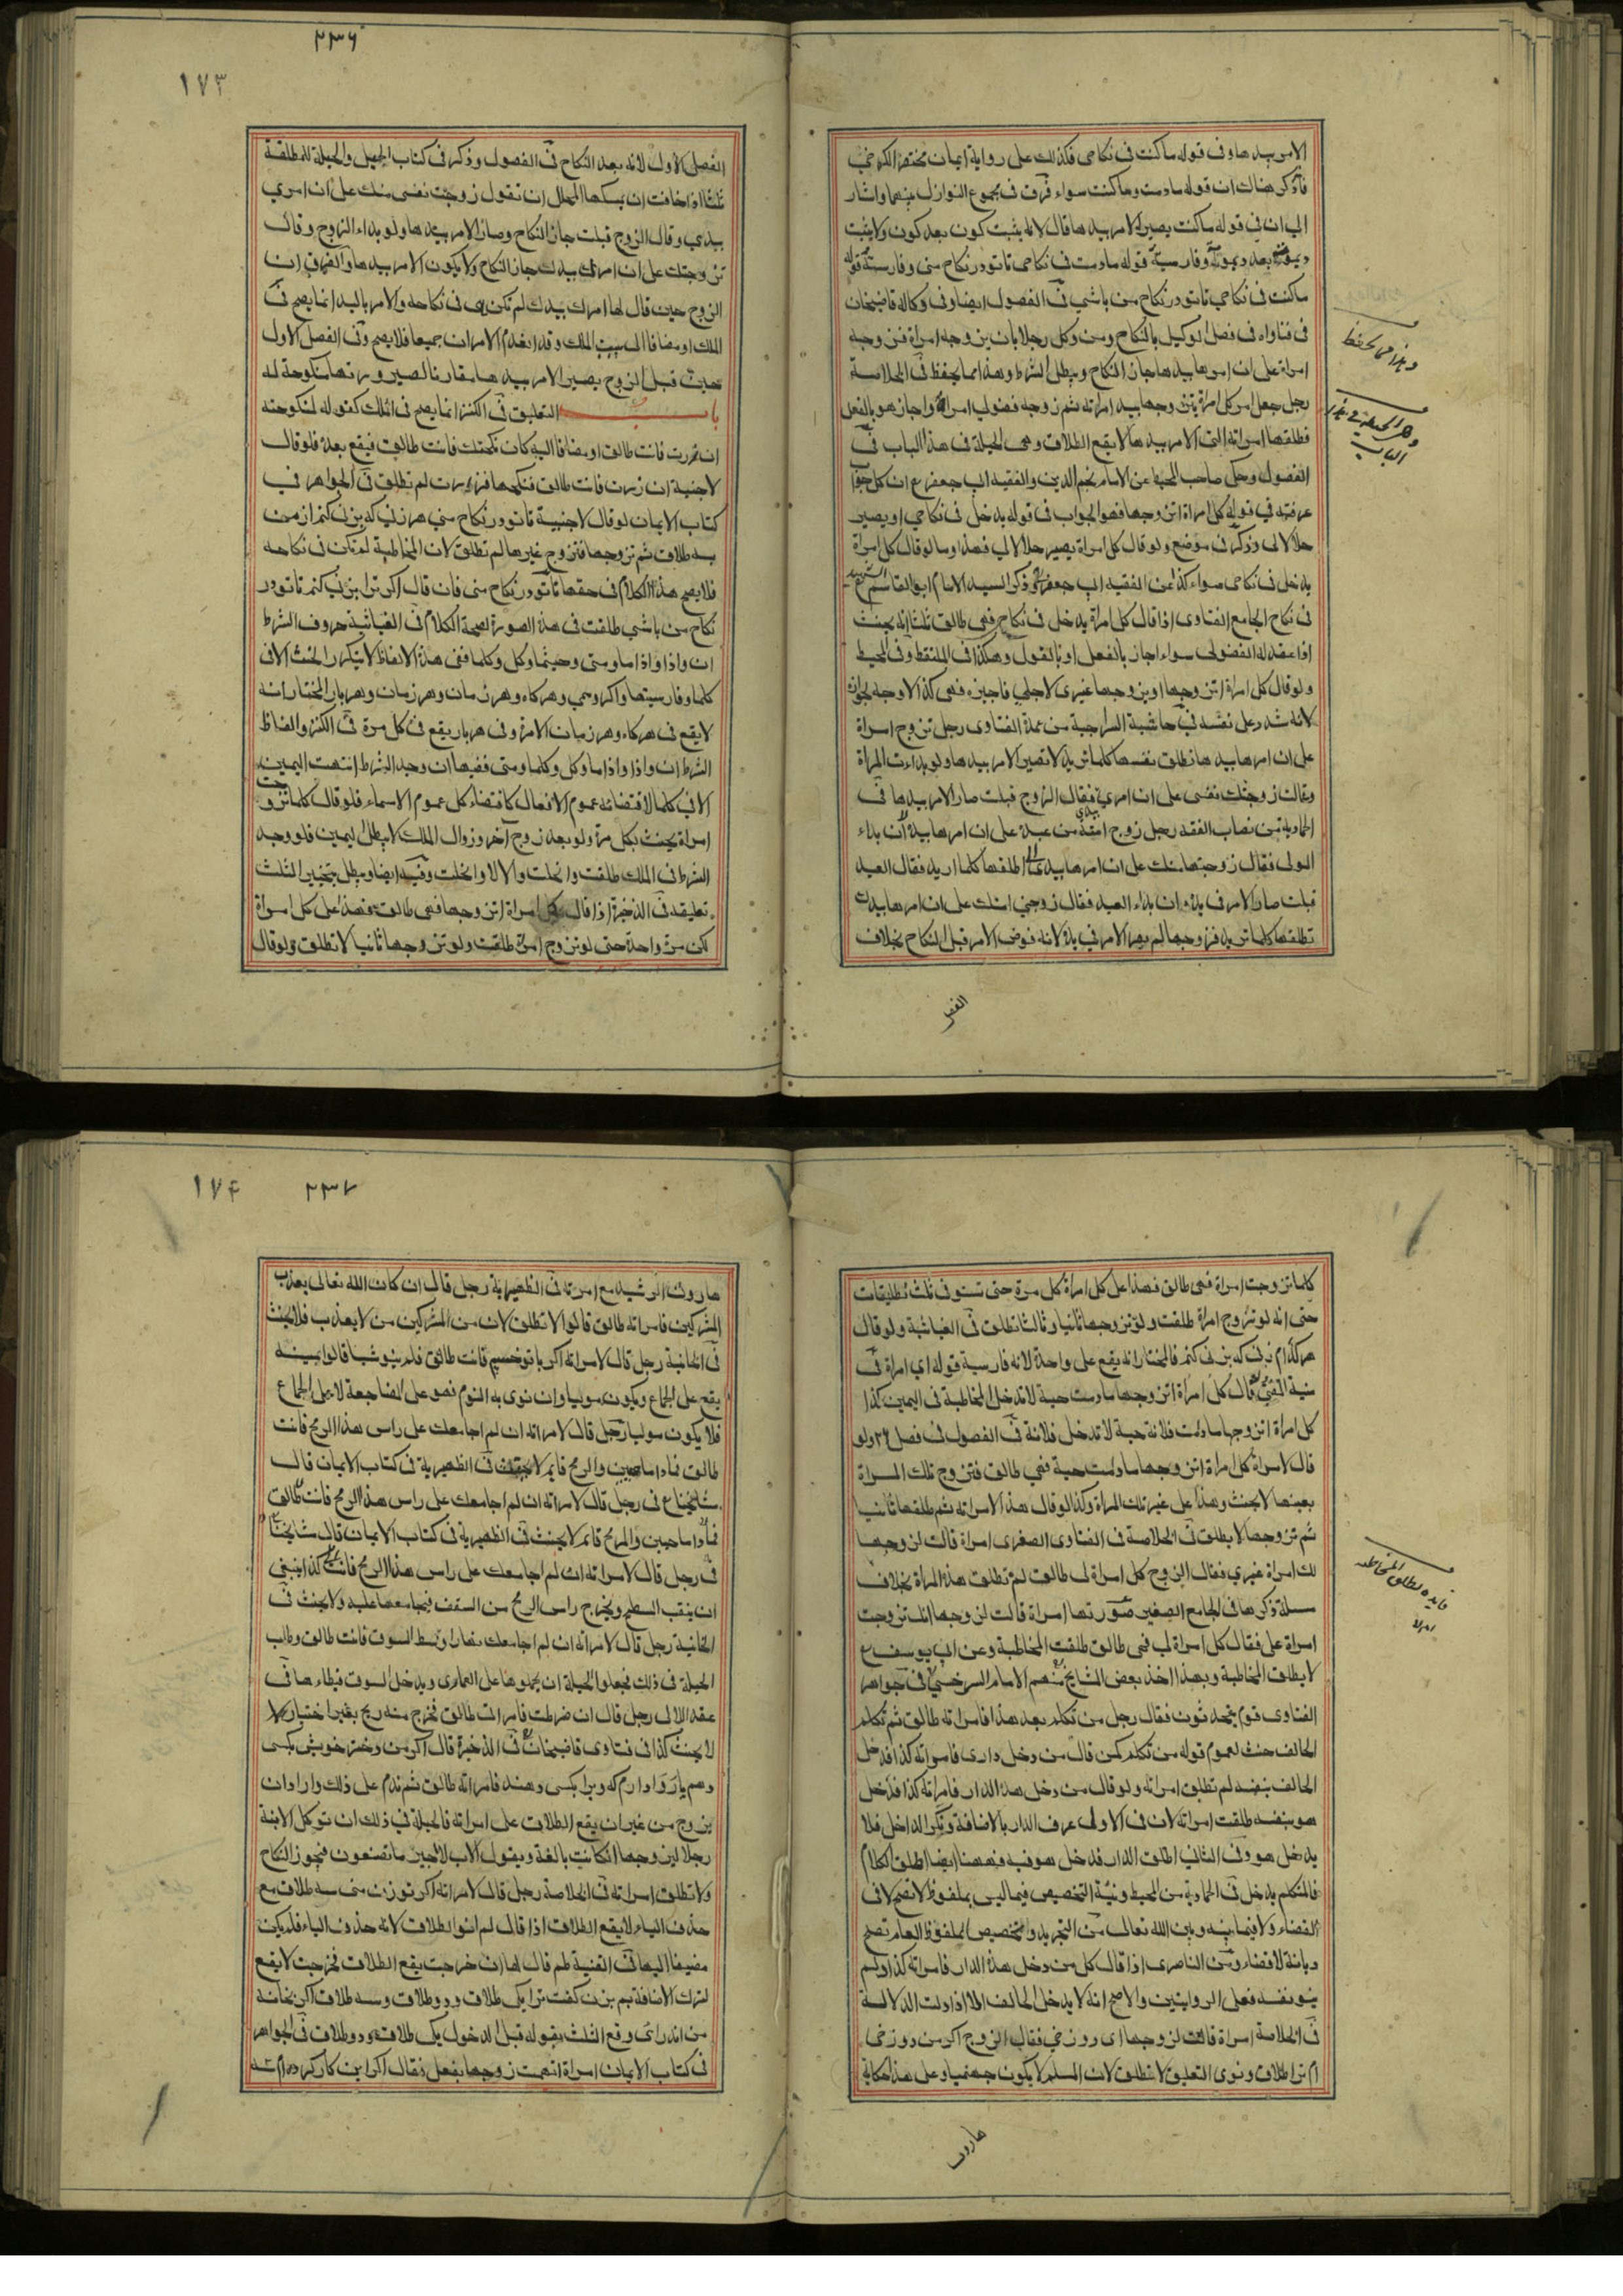 الامر بيدها وفى قوله ما كنت فى نكاحى فكذلك على رواية ايمان مختصر الكرخي
فاذكر هناك ان قوله ما دمت وما كنت سواء فرق فى مجموع النوازل بينهما واشار
الى ان فى قوله ما كنت يصير الامر بيدها قال لانه يثبت كون بعد كون ولا يثبت
ديمومة بعد ديمومة وفارسية قوله ما دمت فى نكاحى تا تو در نكاح منى وفارسية قوله
ما كنت فى نكاحي تا تو در نكاح من باشي فى الفصول ايضا وفى وكالة قاضيخان
فى فتاواه فى فصل الوكيل بالنكاح ومن وكل رجلا بان يزوجه امراة فزوجه
امراة على ان امرها بيدها جاز النكاح ويبطل الشرط وهذا مما يحفظ فى الخلاصة
رجل جعل امر كل امراة يتزوجها بيد امراته ثم زوجه فضولى امراة واجاز هو بالفعل
فطلقها امراته التى الامر بيدها لا يقع الطلاق وهى الحيلة فى هذا الباب فى
الفصول وحكى صاحب المحيط عن الامام نجم الدين والفقيه ابى جعفر ع ان كل جواب
عرفته في قوله كل امراة اتزوجها فهو الجواب فى قوله يدخل فى نكاحي او يصير
حلالا لى وذكر فى موضع ولو قال كل امراة يصير حلالا لي فهذا وما لو قال كل امراة
يدخل فى نكاحى سواء كذا عن الفقيه ابى جعفر وذكر السيد الامام ابو القاسم
فى نكاح الجامع الفتاوى اذا قال كل امراة يدخل فى نكاحى فهى طالق ثلثا انه يحنث
اذا عقد له الفضولى سواء اجاز بالفعل او بالقول وهكذا فى الملتقط وفى المحيط
ولو قال كل امراة اتزوجها او يزوجها غيرى لاجلي فاجيزه فهى كذا لا وجه لجوازه
لانه شدد على نفسه فى حاشية السراجية من عمدة الفتاوى رجل تزوج امراة
على ان امرها بيدها تطلق نفسها كلما تريد لا تصير الامر بيدها ولو بداءت المراة
وقالت زوجتك نفسى على ان امري بيدى فقال الزوج قبلت صار الامر بيدها فى
الحادية من نصاب الفقه رجل زوج امته من عبده على ان امرها بيده ان بداء
المولى فقال زوجتها منك على ان امرها بيدى اطلقها كلما اريد فقال العبد
قبلت صار الامر فى يده وان بداء العبد فقال زوجني امتك على ان امرها بيدك
تطلقها كلما تريد فزوجها لم يصر الامر في يده لانه فوض الامر قبل النكاح بخلاف
وهذا مما يحفظ
وهى الحيلة فى هذا
الباب
الفصل
٢٣٦
١٧٣
الفصل الاول لانه بعد النكاح فى الفصول وذكر فى كتاب الحيل والحيلة للمطلقة
ثلثا اذا خافت ان يمسكها المحلل ان تقول زوجت نفسى منك على ان امري
بيدى وقال الزوج قبلت جاز النكاح وصار الامر بيدها ولو بداء الزوج وقال
تزوجتك على ان امرك بيدك جاز النكاح ولا يكون الامر بيدها والفرق ان
الزوج حين قال لها امرك بيدك لم تكن هى فى نكاحه والامر باليد انما يصح فى
الملك او مضافا الى سبب الملك وقد انعدم الامران جميعا فلا يصح وفى الفصل الاول
حين قبل الزوج يصير الامر بيدها مقارنا لصيرورتها منكوحة له
باب التعليق فى الكنز انما يصح فى الملك كقوله لمنكوحته
ان زرت فانت طالق او مضافا اليه كان نكحتك فانت طالق فيقع بعده فلو قال
لاجنبية ان زرت فانت طالق فنكحها فزارت لم تطلق فى الجواهر فى
كتاب الايمان لو قال لاجنبية تا تو در نكاح مني هر زني كه بزنى كنم از من
بسه طلاق ثم تزوجها فتزوج غيرها لم تطلق لان المخاطبة لم تكن فى نكاحه
فلا يصح هذا الكلام فى حقها تا تو در نكاح منى فان قال اكر ترا بزنى كنم تا تو در
نكاح من باشي طلقت فى هذه الصورة لصحة الكلام فى الغياثية حروف الشرط
ان واذا واذا ما ومتى وحيثما وكل وكلما ففى هذه الالفاظ لا يتكرر الحنث الا فى
كلما وفارسيتها واكر وهمي وهركاه وهر زمان وهر زمان وهر بار المختار انه
لا يقع فى هركاه وهر زمان الا مرة وفى هر بار يقع فى كل مرة فى الكنز والفاظ
الشرط ان واذا واذا ما وكل وكلما ومتى ففيها ان وجد الشرط انتهت اليمين
الا فى كلما لاقتضائه عموم الافعال كاقتضاء كل عموم الاسماء فلو قال كلما تزوجت
امراة يحنث بكل مرة ولو بعد زوج آخر وزوال الملك لا يبطل اليمين فلو وجد
الشرط فى الملك طلقت وانحلت والا لا وانحلت وفيه ايضا ويبطل تنجيز الثلث
تعليقه فى الذخيرة اذا قال كل امراة اتزوجها فهى طالق فهذا على كل امراة
لكن مرة واحدة حتى لو تزوج امراة طلقت ولو تزوجها ثانيا لا تطلق ولو قال
كلما تزوجت امراة فهى طالق فهذا على كل امراة كل مرة حتى تستوفى ثلث تطليقات
حتى انه لو تزوج امراة طلقت ولو تزوجها ثانيا وثالثا تطلق فى الغياثية ولو قال
هر كدام زنى كه بزنى كنم فالمختار انه يقع على واحدة لانه فارسية قوله اى امراة فى
منية المفتى قال كل امراة اتزوجها ما دمت حية لا تدخل المخاطبة فى اليمين كذا
كل امراة اتزوجها ما دامت فلانة حية لا تدخل فلانة فى الفصول فى فصل ٢٤ ولو
قال لامراة كل امراة اتزوجها ما دامت حية فهي طالق فتزوج تلك المراة
بعينها لا يحنث وهذا على غير تلك المراة وكذا لو قال هذا لامراته ثم طلقها ثانيا
ثم تزوجها لا يطلق فى الخلاصة فى الفتاوى الصغرى امراة قالت لزوجها
لك امراة غيري فقال الزوج كل امراة لى طالق لم تطلق هذه المراة بخلاف
مسئلة ذكرها فى الجامع الصغير صورتها امراة قالت لزوجها انك تزوجت
امراة على فقال كل امراة لى فهى طالق طلقت المخاطبة وعن ابى يوسف ع
لا يطلق المخاطبة وبهذا اخذ بعض المشايخ منهم الامام السرخسى فى جواهر
الفتاوى قوم يتحدثون فقال رجل من تكلم بعد هذا فامراته طالق ثم تكلم
الحالف حنث لعموم قوله من تكلم كمن قال من دخل دارى فامراته كذا فدخل
الحالف بنفسه لم تطلق امراته ولو قال من دخل هذه الدار فامراته كذا فدخل
هو بنفسه طلقت امراته لان فى الاولى عرف الدار بالاضافة ونكر الداخل فلا
يدخل هو وفى الثانى اطلق الدار فدخل هو فيه وههنا ايضا اطلق الكلام
فالمتكلم يدخل فى الحادية من المحيط ونية التخصيص فيما ليس بملفوظ لا تصح لا فى
القضاء ولا فيما بينه وبين الله تعالى من التجريد والتخصيص لملفوظ العام تصح
ديانة لا قضاء ومن الناصرى اذا قال كل من دخل هذه الدار فامراته كذا ولم
ينو نفسه فعلى الروايتين والاصح انه لا يدخل الحالف الا اذا دلت الدلالة
فى الخلاصة امراة قالت لزوجها اى دوزخي فقال الزوج اكر من دوزخى
ام ترا طلاق ونوى التعليق لا تطلق لان المسلم لا يكون جهنميا وعلى هذا حكاية
هارون
٢٣٧
١٧٤
هارون الرشيد مع امراته فى الظهيرية رجل قال ان كان الله تعالى يعذب
المشركين فامراته طالق قالوا لا تطلق لان من المشركين من لا يعذب فلا يحنث
فى الخانية رجل قال لامراته اكر با تو خسپم فانت طالق فلم ينو شيا قالوا يمينه
يقع على الجماع ويكون موليا وان نوى به النوم فهو على المضاجعة لاجل الجماع
فلا يكون موليا رجل قال لامراته ان لم اجامعك على راس هذا الرمح فانت
طالق فما داما حيين والرمح قايم لا يحنث فى الظهيرية فى كتاب الايمان قال
مشايخنا ع فى رجل قال لامراته ان لم اجامعك على راس هذا الرمح فانت طالق
فما داما حيين والرمح قائم لا يحنث فى الظهيرية فى كتاب الايمان قال مشايخنا
فى رجل قال لامراته ان لم اجامعك على راس هذا الرمح فانت كذا ينبغى
ان ينقب السطح ويخرج راس الرمح من السقف فيجامعها عليه ولا يحنث فى
الخانية رجل قال لامراته ان لم اجامعك نهارا وسط السوق فانت طالق وطلب
الحيلة فى ذلك فجعلوا الحيلة ان يحملوها على العمارى ويدخل السوق فيطاءها فى
عقد اللالى رجل قال ان ضرطت فامراتى طالق فخرج منه ريح بغير اختياره
لا يحنث كذا فى فتاوى قاضيخان فى الذخيرة قال اكر من دختر خويش بكسى
دهم يا روا دارم كه ويرا بكسى دهند فامراته طالق ثم ندم على ذلك واراد ان
يزوج من غير ان يقع الطلاق على امراته فالحيلة في ذلك ان توكل الابنة
رجلا ليزوجها ان كانت بالغة ويقول الاب لا اجيز ما تصنعون فيجوز النكاح
ولا تطلق امراته فى الخلاصة رجل قال لامراته اكر تو زن منى سه طلاق مع
حذف الياء لا يقع الطلاق اذا قال لم انو الطلاق لانه حذف الياء فلم يكن
مضيفا اليها فى القنية لم قال لها ان خرجت يقع الطلاق فخرجت لا يقع
لترك الاضافة بم بزن كفت ترا يك طلاق ودو طلاق وسه طلاق اكر بخانه
من اندر آى وقع الثلث بقوله قبل الدخول يك طلاق ودو طلاق فى الجواهر
فى كتاب الايمان امراة اتهمت زوجها بفعل فقال اكر اين كار كرده ام